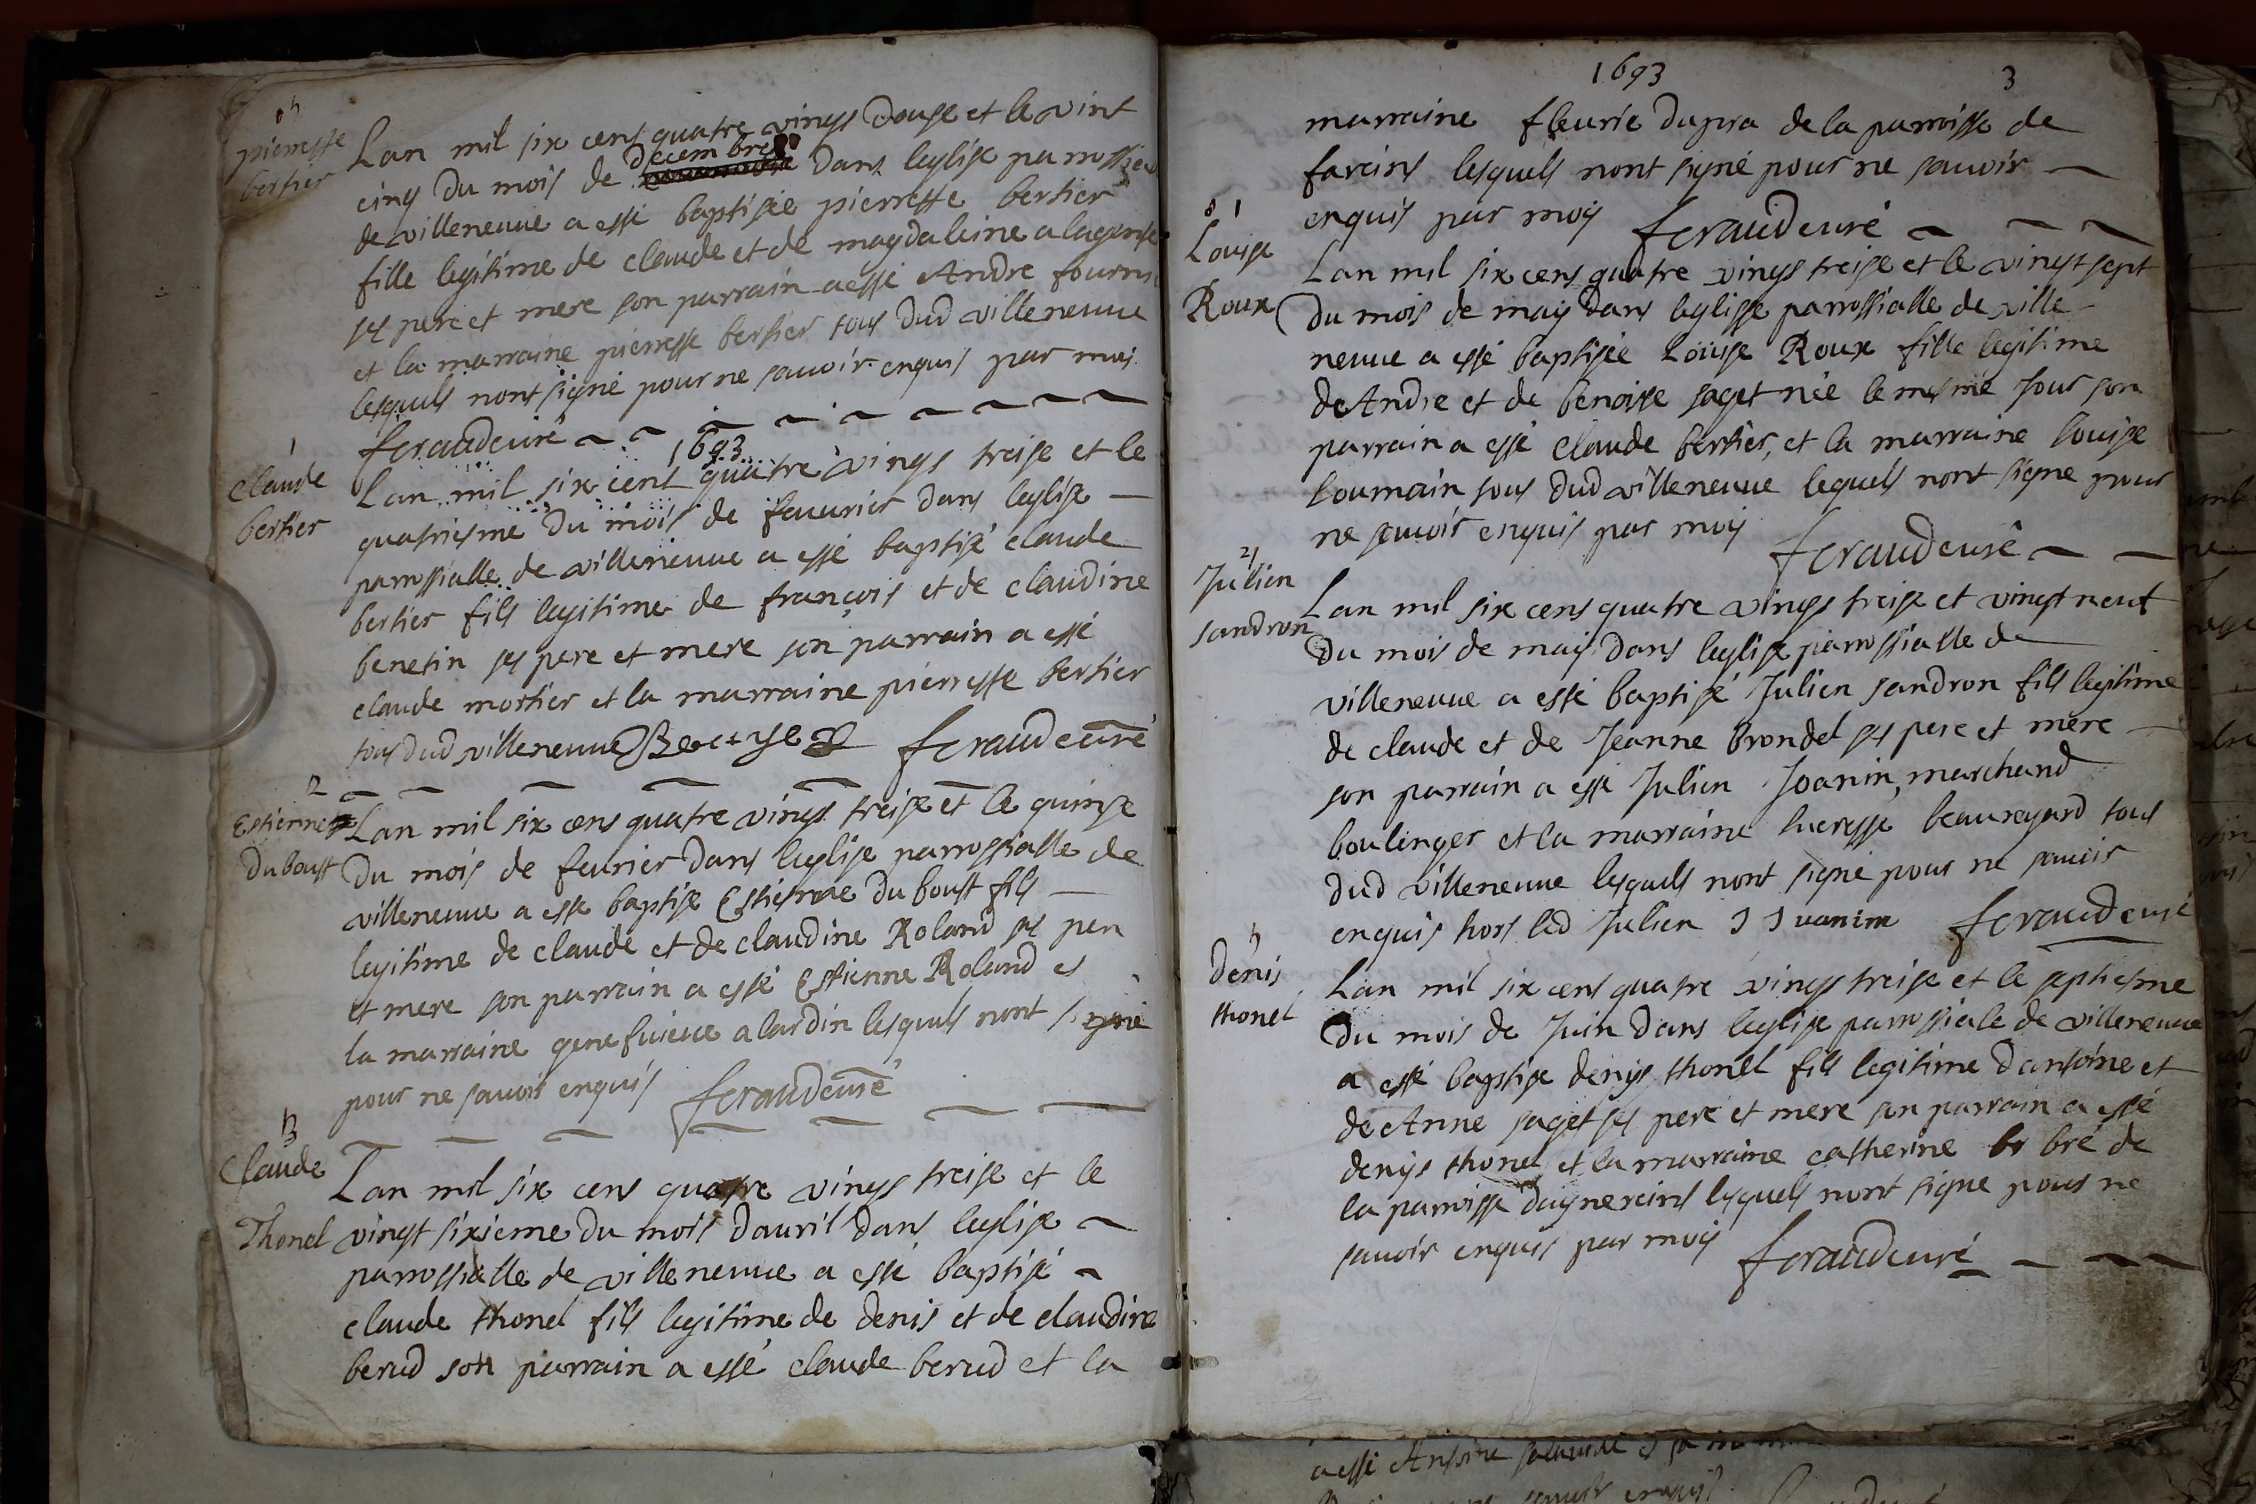 pierresse
bertier
Lan mil six cens quatre vings douse et le vint
cinq du mois de decembre dans leglise parrossialle
de villeneuue a esté baptisée pierresse bertier
fille legitime de claude et de magdaleine
ses pere et mere son parrain a esté Andre fournie
et la marraine pierresse bertier tous dud villeneuue
lesquels nont signé pour ne sauoir enquis par moi
feraud curé
1693
claude
bertier
Lan mil six cent quatre vings treise et le
quatriesme du mois de feuurier dans leglise
parrossialle de villeneuue a esté baptisé claude
bertier fils legitime de françois et de claudine
benetin ses pere et mere son parrain a esté
claude mortier et la marraine pierresse bertier
tous dud villeneuue feraud curé
2
Estienne
Duboust
Lan mil six cens quatre vings treise et le quinze
du mois de feurier dans leglise parrossialle de
villeneuue a esté baptisé Estienne Duboust fils
legitime de claude et de claudine Roland ses pere
et mere son parrain a esté Estienne Roland et
la marraine genefuieue alardin lesquels nont signé
pour ne sauoir enquis feraud curé
Claude
Thonel
Lan mil six cens quatre vings treise et le
vingt sixieme du mois dauril dans leglise
parrossialle de villeneuue a esté baptisé
claude thonel fils legitime de denis et de claudine
berud son parrain a esté claude berud et la
1693 3
marraine fleurie dupra de la parroisse de
fareins lesquels nont signé pour ne sauoir
enquis par moy feraud curé
Louise
Roux
Lan mil six cens quatre vings treise et le vingt sept
du mois de may dans leglisse parrossialle de ville
neuue a esté baptisée Louise Roux fille legitime
de Andre et de benoisse saget née le mesme Jour son
parrain a esté claude bertier, et la marraine louise
loumain tous dud villeneuue lequels nont signe pour
ne sauoir enquis par moy feraud curé
Julien
sandron
Lan mil six cens quatre vings treise et vingt neuf
du mois de may dans leglise parrossialle de
villeneuue a esté baptisé Julien sandron fils legitime
de claude et de Jeanne brondel ses pere et mere
son parrain a esté Julien Joanin, marchand
boulenger et la marraine lucresse beauregard tous
dud villeneuue lesquels nont signé pour ne sauoir
enquis hors led Julien J Juanin feraud curé
Denis
thonel
Lan mil six cens quatre vings treise et le septiesme
du mois de Juin dans leglise parrossiale de villeneuue
a esté baptise denys thonel fils legitime dantoine et
de Anne saget ses pere et mere son parrain a esté
denys thonel et la marraine catherine bré de
la parroisse daynereins lesquels nont signe pour ne
sauoir enquis par moy feraud curé